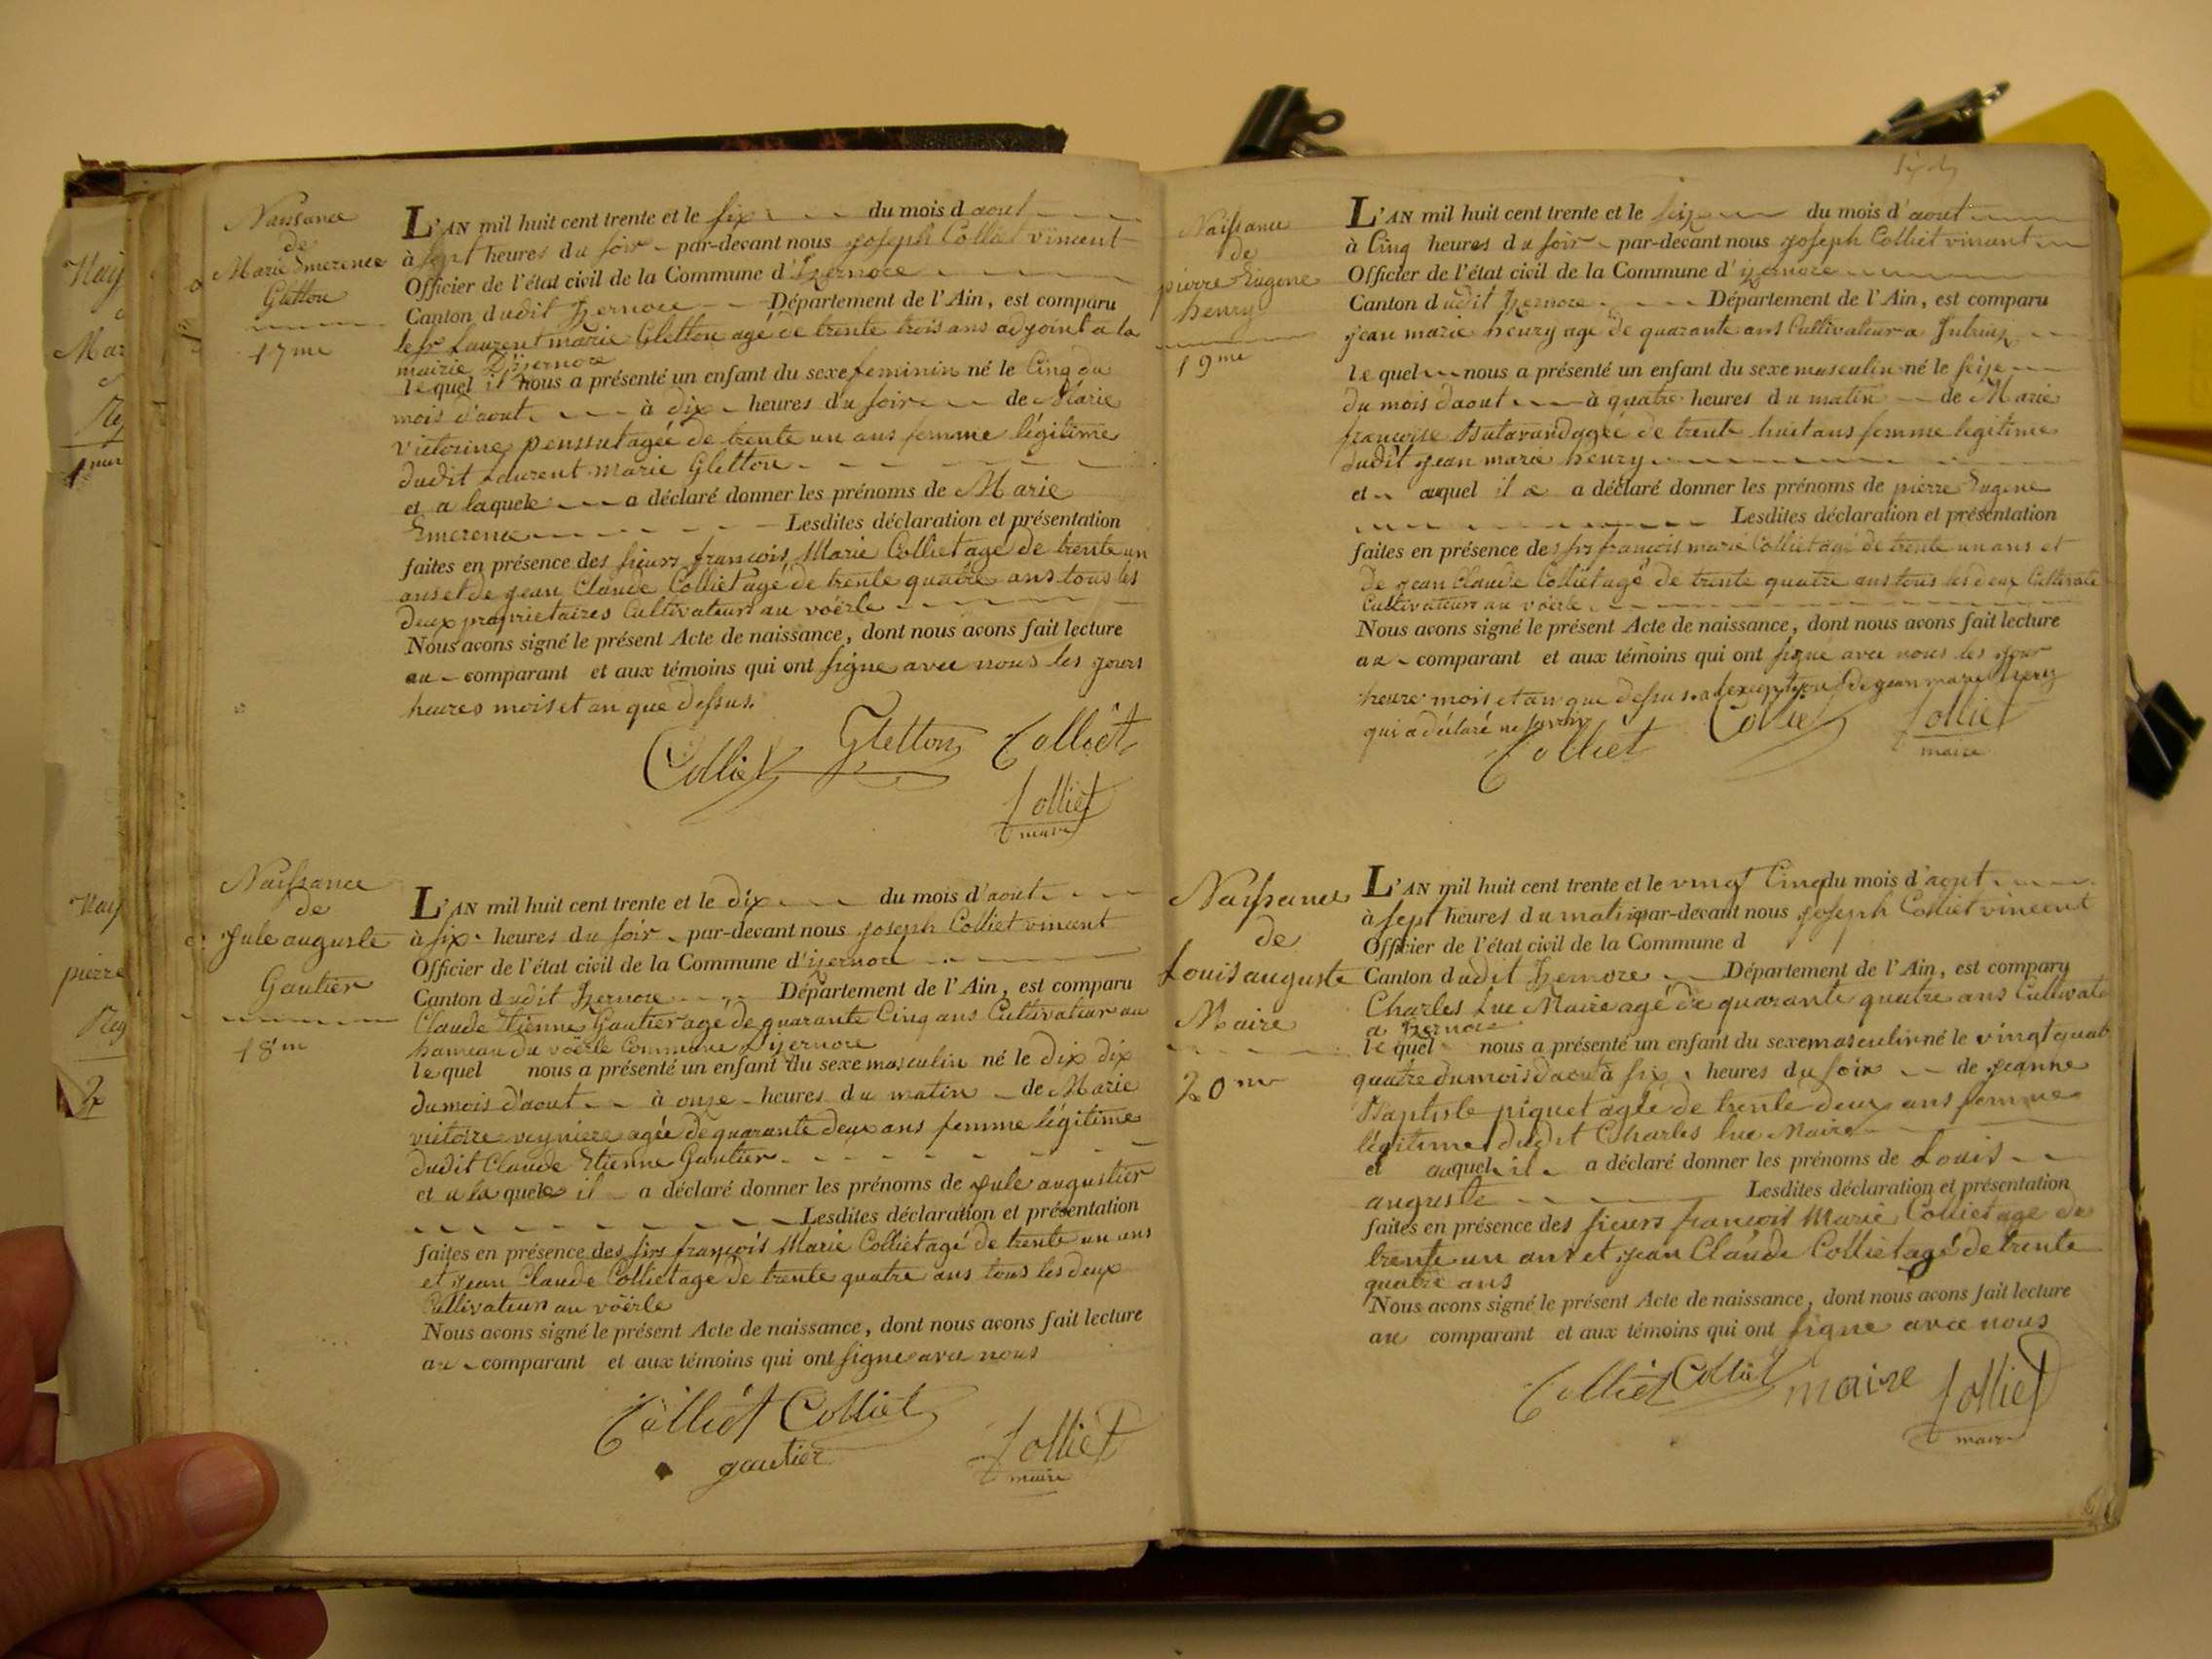 Naissance
de
Marie Emerence
Gletton
17me
L'AN mil huit cent trente et le six du mois d aout
à sept heures du soir par-devant nous joseph Colliet vincent
Officier de l'état civil de la Commune d'Izernore
Canton dudit Izernore Département de l'Ain, est comparu
le sr Laurent marie Gletton agé de trente trois ans adjoint a la
mairie D'izernore
lequel il nous a présenté un enfant du sexe feminin né le Cinq du
mois d'aout à dix heures du soir de Marie
victorine penssut agée de trente un ans femme légitime
dudit Laurent marie Gletton
et a laquele a déclaré donner les prénoms de Marie
Emerence Lesdites déclaration et présentation
faites en présence des sieurs françois Marie Colliet agé de trente un
ans et de jean Claude Colliet agé de trente quatre ans tous les
deux proprietaires Cultivateurs au vöerle
Nous avons signé le présent Acte de naissance, dont nous avons fait lecture
au comparant et aux témoins qui ont signe avec nous les jours
heures mois et an que dessus.
Colliet Gletton Colliet
Colliet
maire
Naissance
de
Jule auguste
Gautier
18me
L'AN mil huit cent trente et le dix du mois d'aout
à six heures du soir par-devant nous joseph Colliet vincent
Officier de l'état civil de la Commune d'izernore
Canton dudit Izernore Département de l'Ain, est comparu
Claude Etienne Gautier agé de quarante Cinq ans Cultivateur au
hameau du vöerle Commune d'izernore
lequel nous a présenté un enfant du sexe masculin né le dix dix
du mois d'aout à onze heures du matin de Marie
victoire veyniere agée de quarante deux ans femme légitime
dudit Claude Etienne Gautier
et a laquele il a déclaré donner les prénoms de jule augustier
Lesdites déclaration et présentation
faites en présence des sirs françois Marie Colliet agé de trente un ans
et jean Claude Colliet agé de trente quatre ans tous les deux
Cultivateurs au vöerle
Nous avons signé le présent Acte de naissance, dont nous avons fait lecture
au comparant et aux témoins qui ont signe avec nous
Colliet Colliet
gautier
Colliet
maire
Naissance
de
pierre Eugene
henry
19me
L'AN mil huit cent trente et le seize du mois d'aout
à Cinq heures du soir par-devant nous joseph Colliet vincent
Officier de l'état civil de la Commune d'izernore
Canton dudit Izernore Département de l'Ain, est comparu
jean marie henry agé de quarante ans Cultivateur a
lequel nous a présenté un enfant du sexe masculin né le seize
du mois d'aout à quatre heures du matin de Marie
françoise agée de trente huit ans femme legitime
dudit jean marie henry
et auquel il a a déclaré donner les prénoms de pierre Eugene
Lesdites déclaration et présentation
faites en présence des srs françois marie Colliet agé de trente un ans et
de jean Claude Colliet agé de trente quatre ans tous les deux Cultivate
Cultivateurs au vöerle
Nous avons signé le présent Acte de naissance, dont nous avons fait lecture
au comparant et aux témoins qui ont signe avec nous les jour
heure mois et an que dessus a lexception de jean marie henry
qui a déclaré ne savoir
Colliet Colliet Colliet
maire
Naissance
de
Louis auguste
Maire
20me
L'AN mil huit cent trente et le vingt Cinq du mois d'aout
à sept heures du matin par-devant nous joseph Colliet vincent
Officier de l'état civil de la Commune d
Canton dudit Izernore Département de l'Ain, est comparu
Charles Luc Maire agé de quarante quatre ans Cultivate
a Izernore
lequel nous a présenté un enfant du sexe masculin né le vingt quat
quatre du mois d'aout à six heures du soir de jeanne
Baptiste piquet agée de trente deux ans femme
légitime dudit Charles luc Maire
et auquel il a déclaré donner les prénoms de Louis
auguste Lesdites déclaration et présentation
faites en présence des sieurs françois Marie Colliet age de
trente un ans et jean Claude Colliet agé de trente
quatre ans
Nous avons signé le présent Acte de naissance, dont nous avons fait lecture
au comparant et aux témoins qui ont signe avec nous
Colliet Colliet maire Colliet
maire